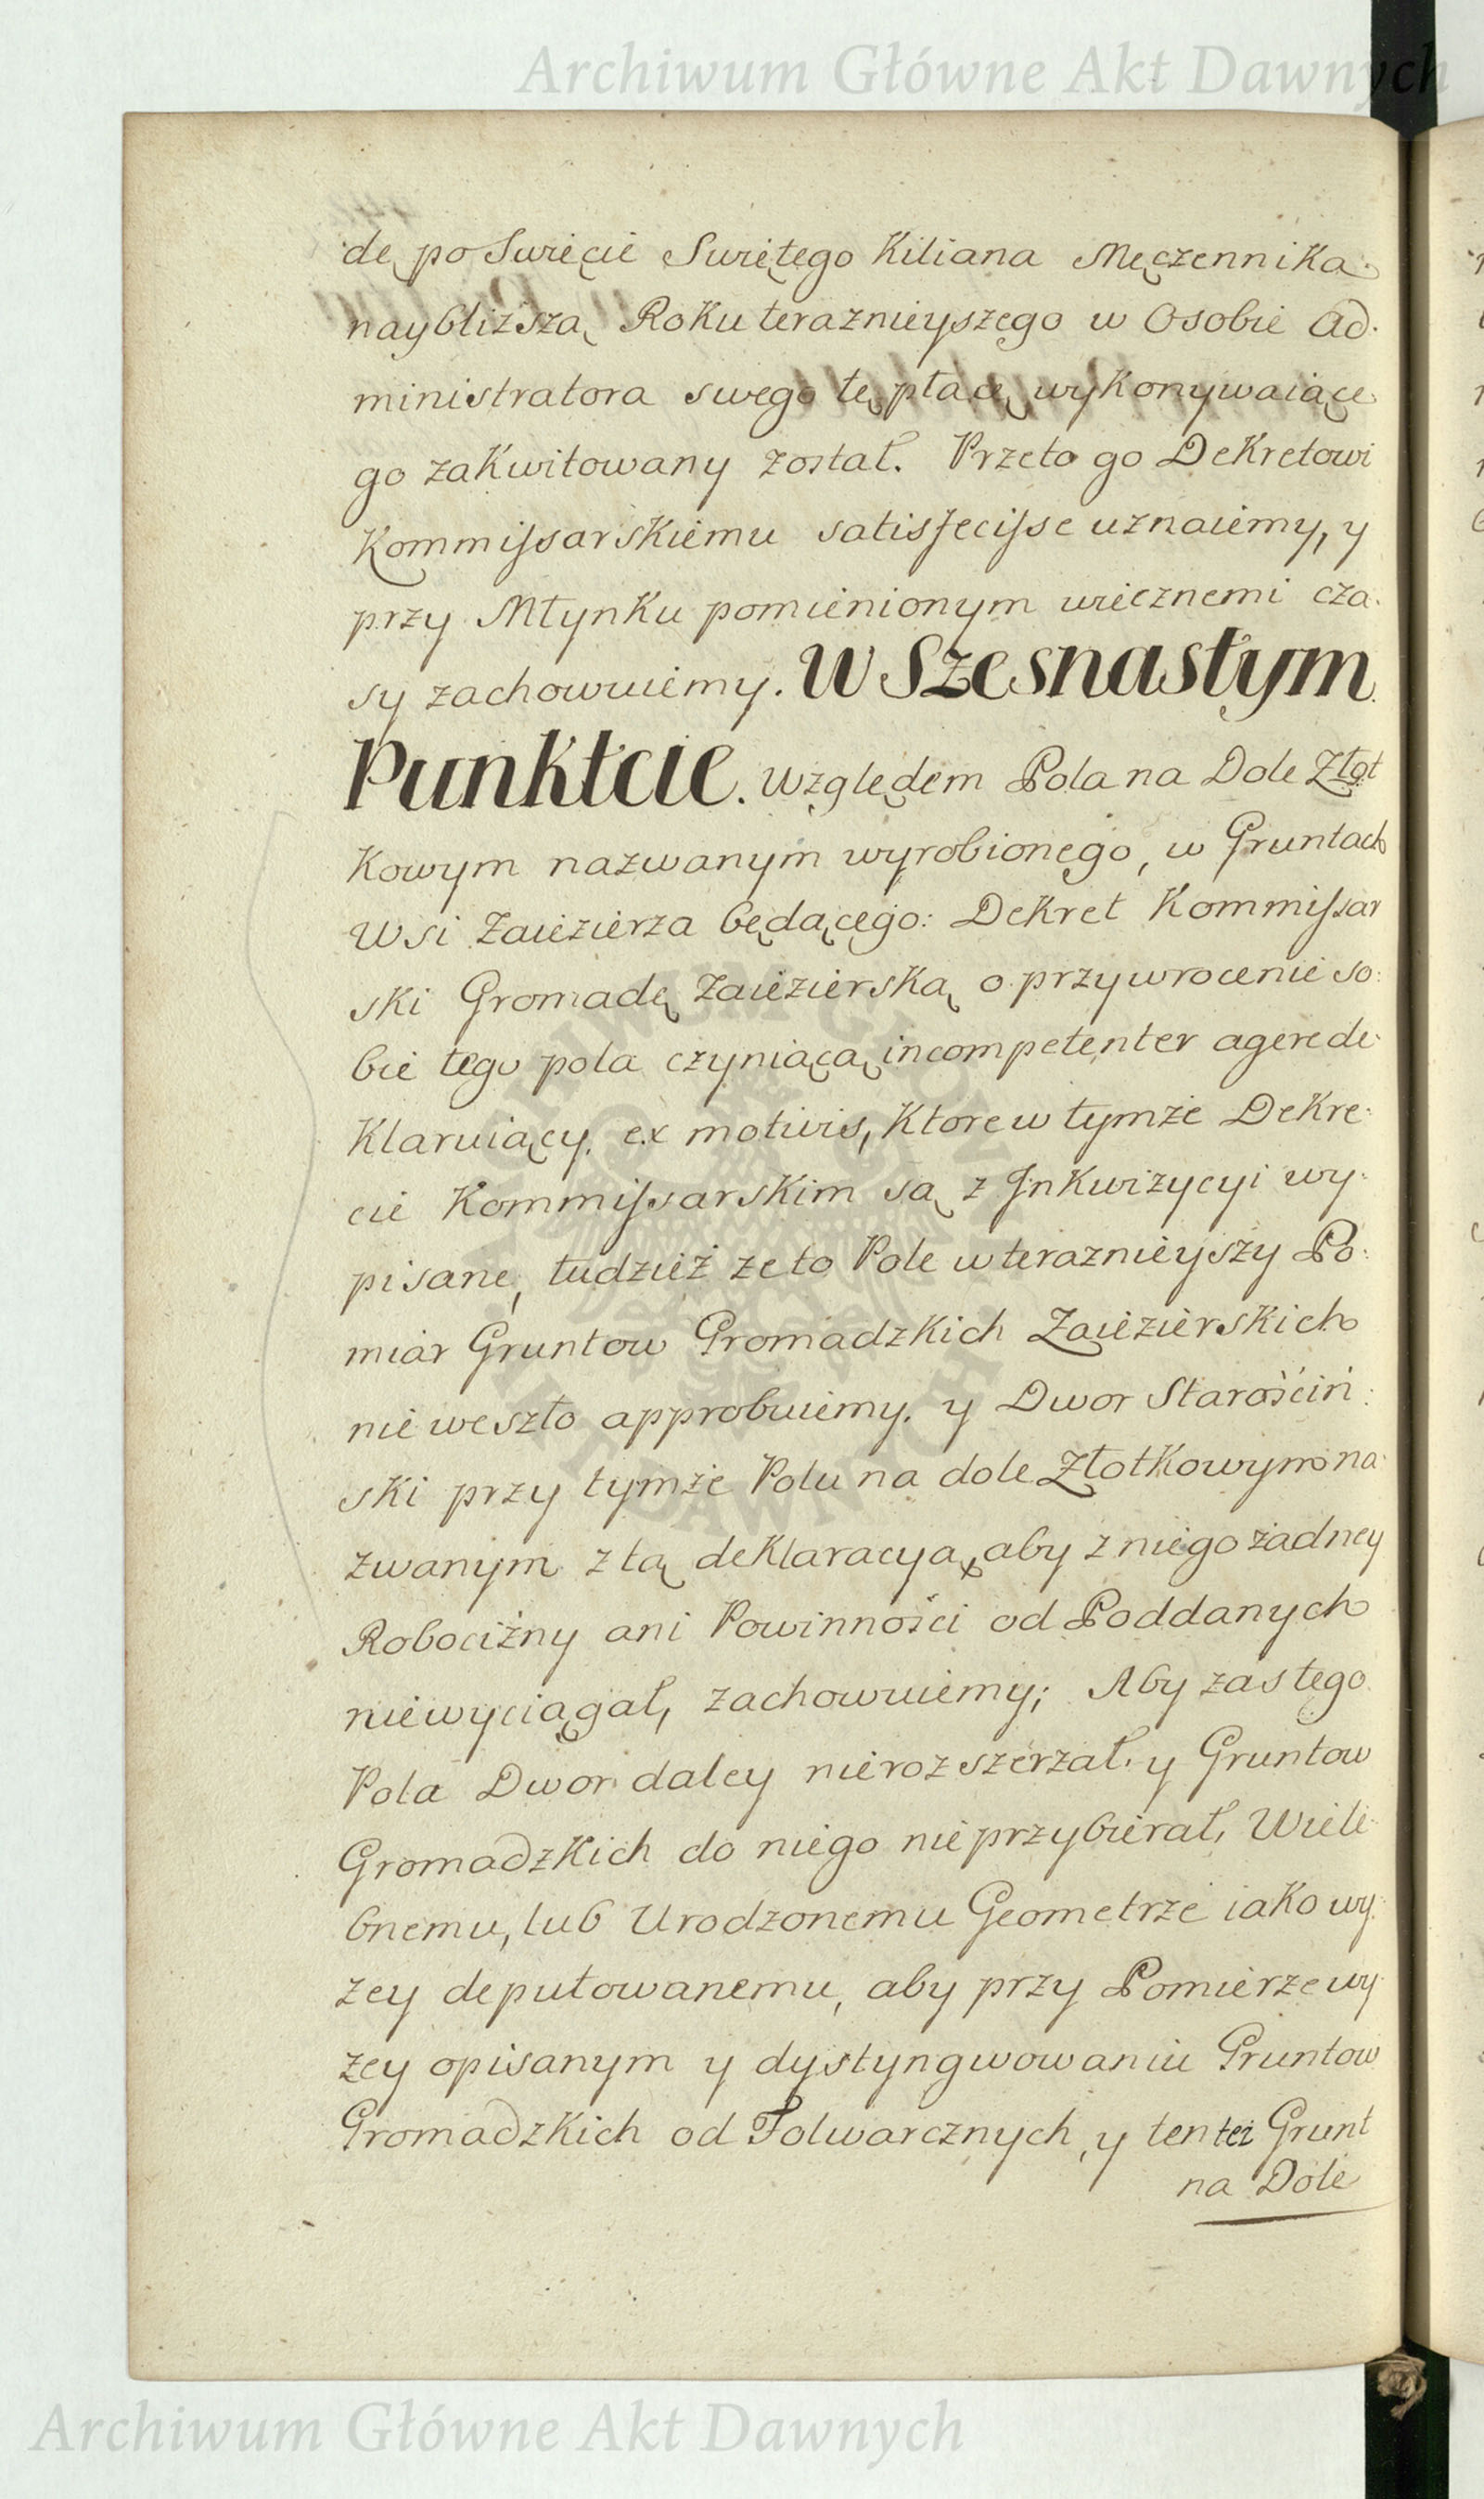 Archiwum Główne Akt Dawnych
dę po Swięcie Swiętego Kiliana Męczennika
naybliższą Roku teraznieyszego w Osobie Ad-
ministratora swego tę płacę wykonywaiące-
go zakwitowany został. Przeto go Dekretowi
Kommissarskiemu satisfecisse uznaiemy, y
przy Młynku pomienionym wiecznemi cza-
sy zachowuiemy. W Szesnastym
Punktcie. Względem Pola na Dole Złot
kowym nazwanym wyrobionego, w Gruntach
Wsi Zaiezierza będącego: Dekret Kommissar
ski Gromadę Zaiezierską o przywrocenie so-
bie tego pola czyniącą incompetenter agere de-
klaruiący, ex motivis, ktore w tymże Dekre-
cie Kommissarskim są z Inkwizycyi wy-
pisane, tudzież że to Pole w teraznieyszy Po-
miar Gruntow Gromadzkich Zaiezierskich
nie weszło approbuiemy, y Dwor Starościń-
ski przy tymże Polu na dole Złotkowym na-
zwanym z tą deklaracyą, aby z niego żadney
Robocizny ani Powinności od Poddanych
niewyciągał, zachowuiemy; Aby zas tego
Pola Dwor daley nierozszerzał, y Gruntow
Gromadzkich do niego nieprzybierał, Wiele-
bnemu, lub Urodzonemu Geometrze iako wy-
zey deputowanemu, aby przy Pomierze wy-
żey opisanym y dystyngwowaniu Gruntow
Gromadzkich od Folwarcznych, y ten też Grunt
na Dole
Archiwum Główne Akt Dawnych